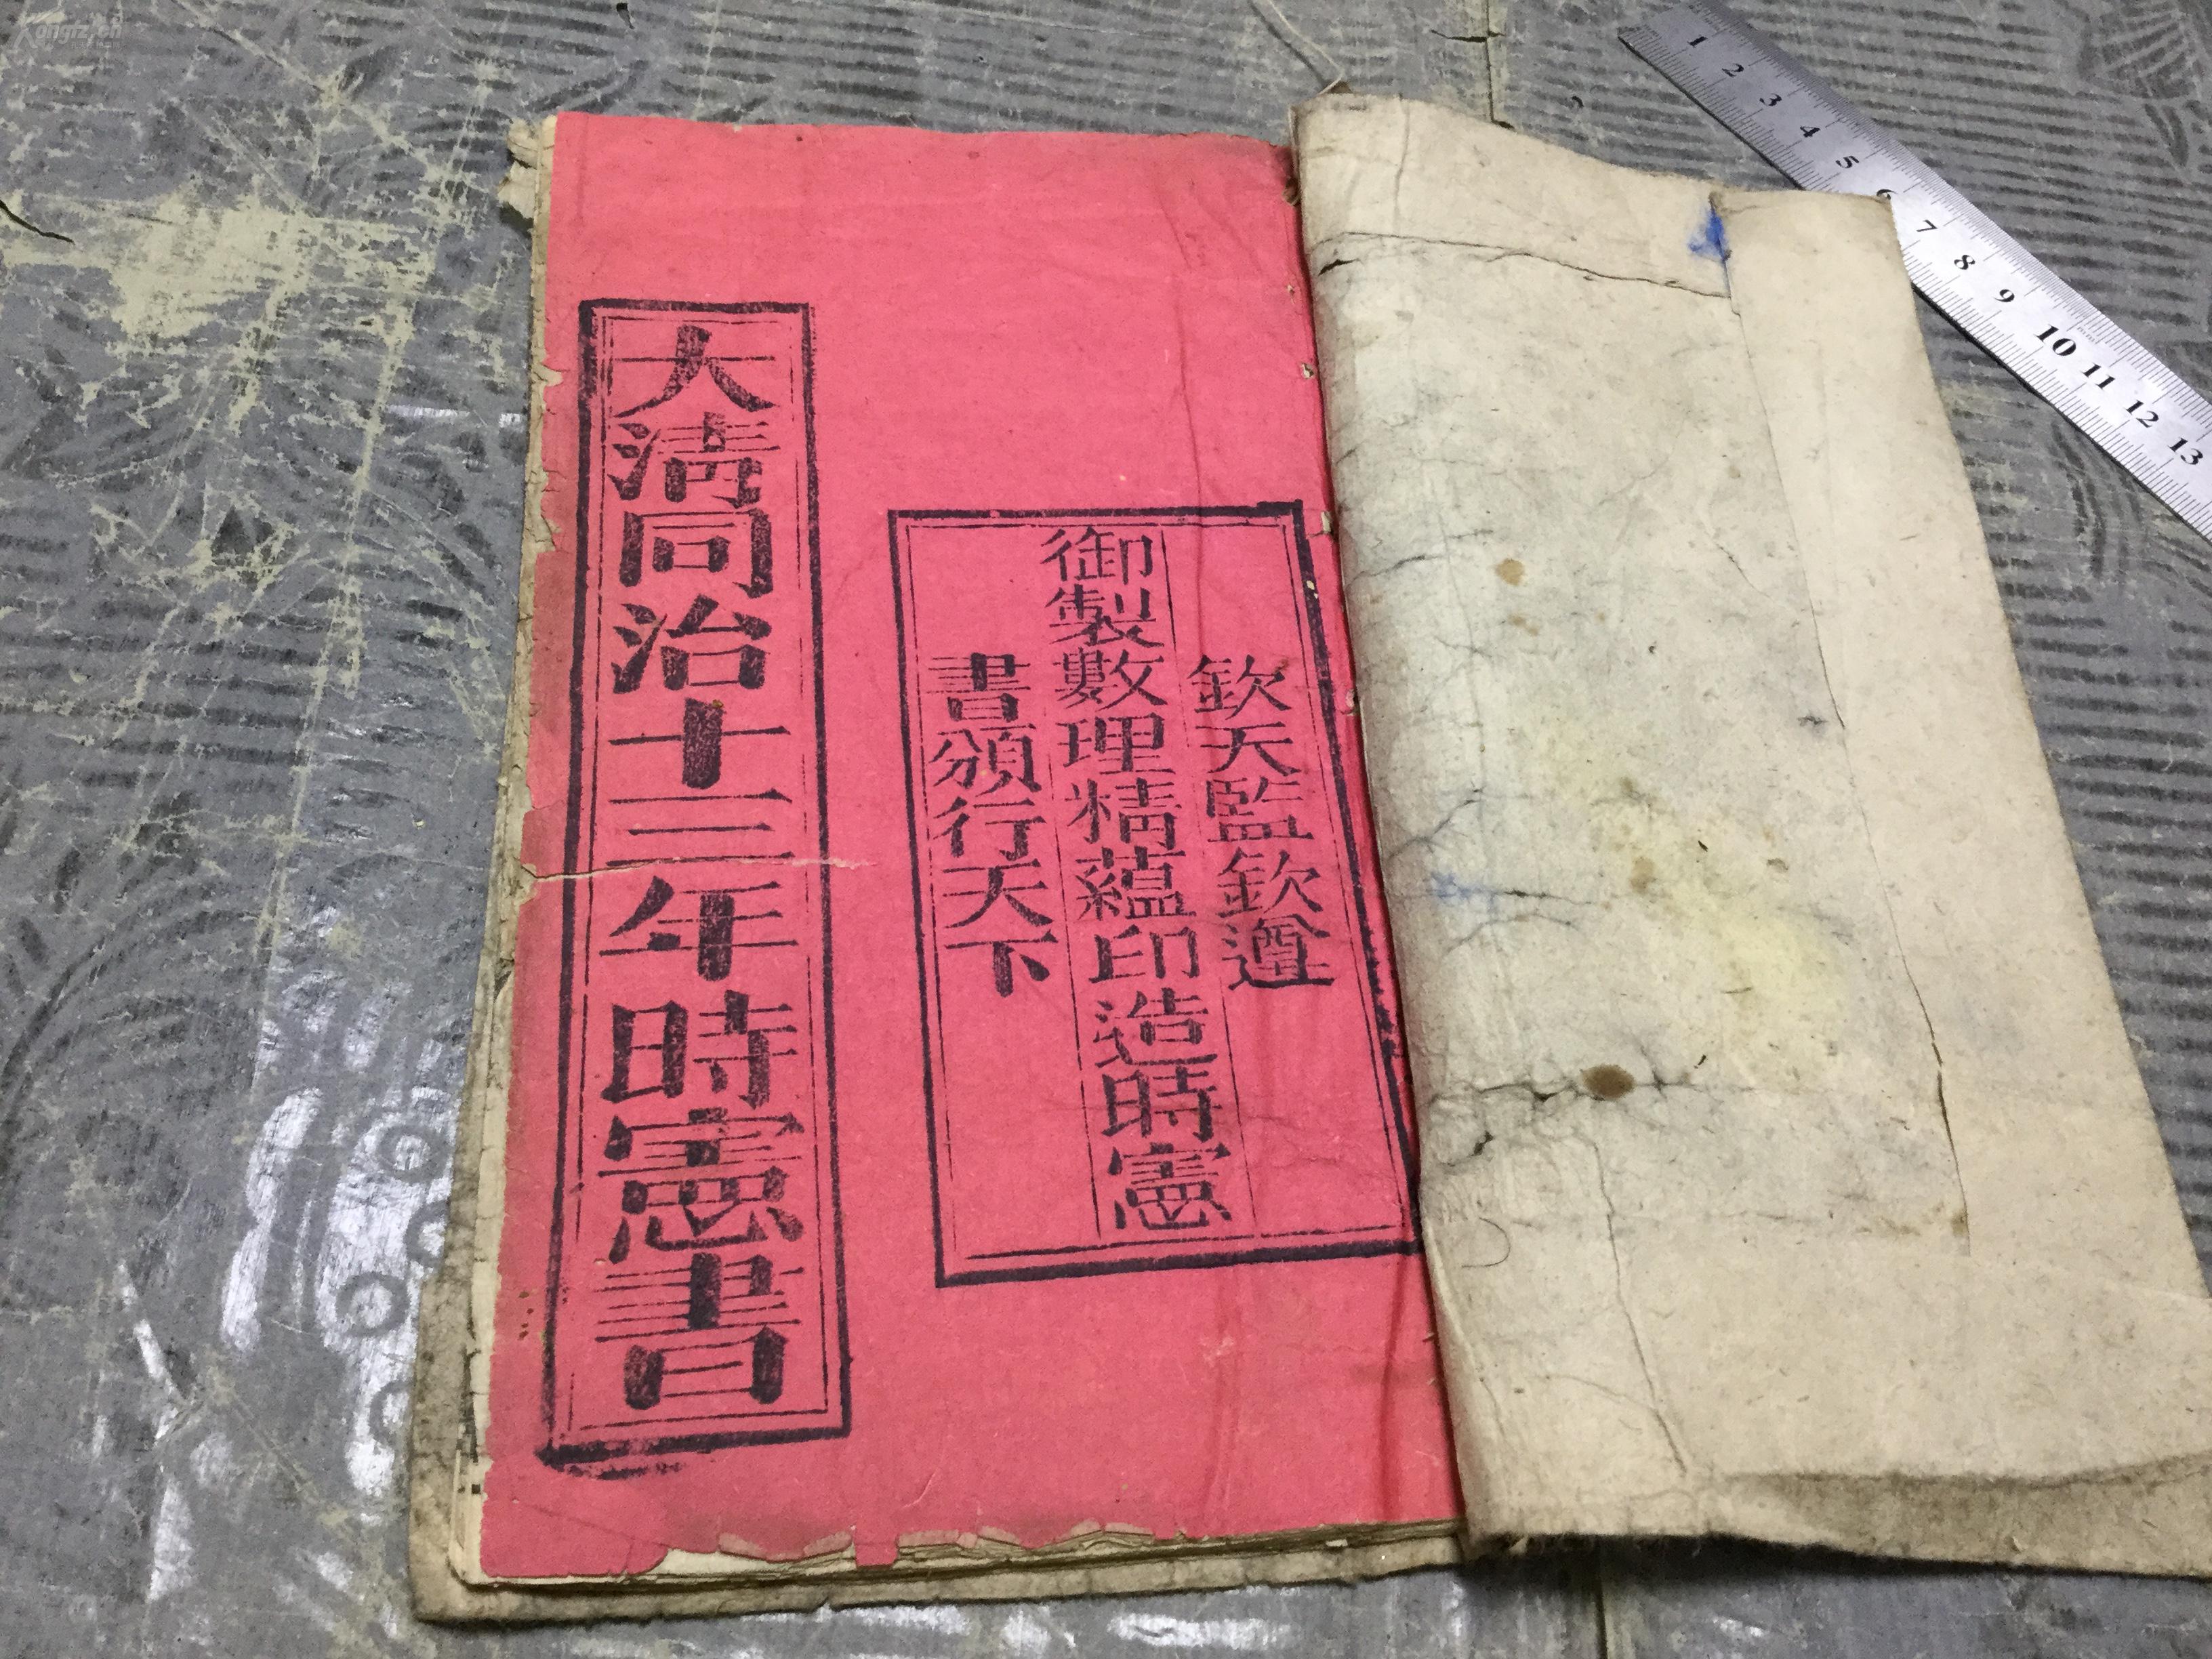 欽天監欽遵
御製數理精蘊印造時憲
書頒行天下
大清同治十三年時憲書
1 2 3 4 5 6 7 8 9 10 11 12 13
Kongfz.cn